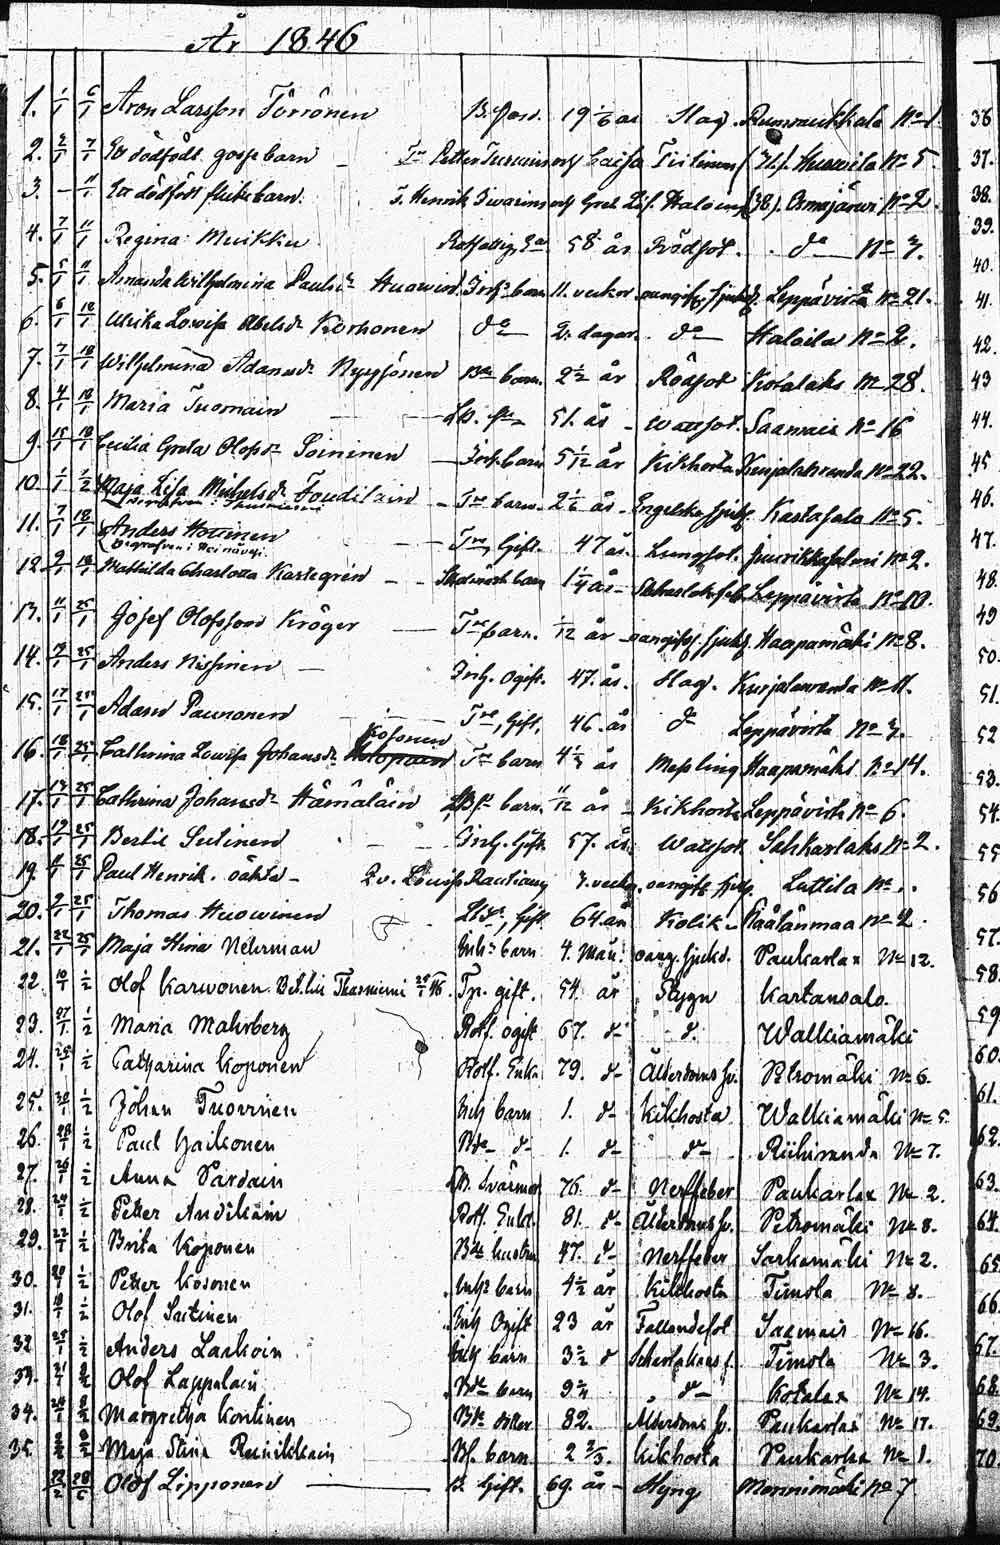 År 1846
1. 1/1 6/1 Aron Larsson Törrönen B. son. 19 1/6 år Slag Rummukkala No 1.
2. 2/1 7/1 Ett dödfödt gossebarn Tr Petter Turuinen och Caisa Tiilinen (31.). No 5.
3. 11/1 Ett dödfödt flickebarn. T. Henrik Iwarinen och Gret. Lis. Haloin (38). Osmajärwi No 2.
4. 7/1 11/1 Regina Muikku Rotfattig 58 år Rödsot. do No 7.
5. 5/1 11/1 Amanda Wilhelmina Paulsdr Huowin. Inhs barn 11. veckor oangifv. sjukd. Leppävirta No 21.
6. 6/1 18/1 Ulrika Lowisa Abelsdr Korhonen do 2. dagar. do Haloila No 2.
7. 7/1 18/1 Wilhelmina Adamsdr Nyyssönen Bde barn. 2 1/2 år Rödsot Kotalaks No 28.
8. 4/1 18/1 Maria Tuomain 51. år Wattsot. Saamais No 16
9. 15/1 18/1 Cecilia Greta Olofsdr Soininen Inh. barn 5 1/12 år Kikhosta Kurjalanranda No 22.
10. 1/1 1/2 Maja Lisa Michelsdr Toudilain Tre barn. 2 1/6 år Engelska sjuk. Kastafala No 5.
11. 7/1 18/1 Anders Houinen Tre, Gift. 47 år. Lungsot. No 2.
(begrafven i Heinävesi.
12. 9/1 18/1 Mathilda Charlotta Kartegrén barn 1 1/4 år Leppävirta No 10.
13. 11/1 25/1 Josef Olofsson Kröger Tre barn. 1/12 år oangifv. sjukd. Haapamäki No 8.
14. 25/1 Anders Nissinen Inh. Ogift. 47. år. Slag. Kurjalanranda No 11.
15. 17/1 25/1 Adam Paunonen Tre, Gift, 46. år do Leppävirta No 3.
Kosonen
16. 18/1 25/1 Catharina Lowisa Johansdr Tre barn 4 år Messling Haapamäki No 14.
17. 25/1 Cathrina Johansdr Hämäläin barn. 11/12 år Kikhosta Leppävirta No 6.
18. 19/1 25/1 Bertil Sutinen Inh. Gift. 57. år. Wattsot. Sahkarlaks No 2.
19. 25/1 Paul Henrik. oäkta Qv. Lowisa Rautiain 7. veckor. oangifv. sjukd. Luttila No
20. 9/1 25/1 Thomas Huowinen Gift 64 år Kolik Näätänmaa No 2.
21. 22/1 25/1 Maja Stina Nehrman Inhs barn 4. Mån. oang. sjukd. Paukarlax No 12.
22. 10/1 1/2 Olof Karwonen. Tp. gift. 54. år Stygn Kartansalo.
23. 27/1 1/2 Maria Mahrberg Rotf. ogift 67. d d. Walkiamäki
24. 1/2 Catharina Koponen Rotf. Enka 79. d Ålderdoms sv. Petromäki No 6.
25. 30/1 1/2 Johan Tuovinen Inh barn 1. d Kikhosta Walkiamäki No 5.
26. 28/1 1/2 Paul Haikonen Bde d 1. d d Riihiranda No 7.
27. 26/1 1/2 Anna Pardain Svärmor 76. d Nerffeber Paukarlax No 2.
28. 24/1 1/2 Petter Andikain Rotf. Enkl. 81. d Ålderdoms sv. Petromäki No 8.
29. 27/1 1/2 Brita Koponen Bde hustru 47. d Nerffeber Sarkamäki No 2.
30. 20/1 1/2 Petter Kosonen Inhs barn 4 1/2 år Kikhosta Timola No 8.
31. 18/1 1/2 Olof Sutinen Inh Ogift 23 år Fallandesot Saamais No 16.
32. 25/1 1/2 Anders Laakoin Inh barn 3 1/2 d Scharlakans f. Timola No 3.
33. 31/1 8/2 Olof Lappalain Bde barn 9 d Kotalax No 14.
34. 8/2 Margretha Kontinen Bde dotter 82. Ålderdoms sv. Paukarlax No 17.
35. 8/2 Maja Stina Reinikkain Bf. barn 2 2/3. Kikhosta Paukarlax No 1.
22/2 28/6 Olof Lipponen B. Gift. 69. år Styng Monnimäki No 7
36
37.
38.
39.
40.
41.
42.
43
44.
45
46.
47.
48.
49
50.
51.
52
53.
54.
55
56
57.
58.
59
60.
61.
62.
63.
64.
65
66.
67.
68.
69.
70.